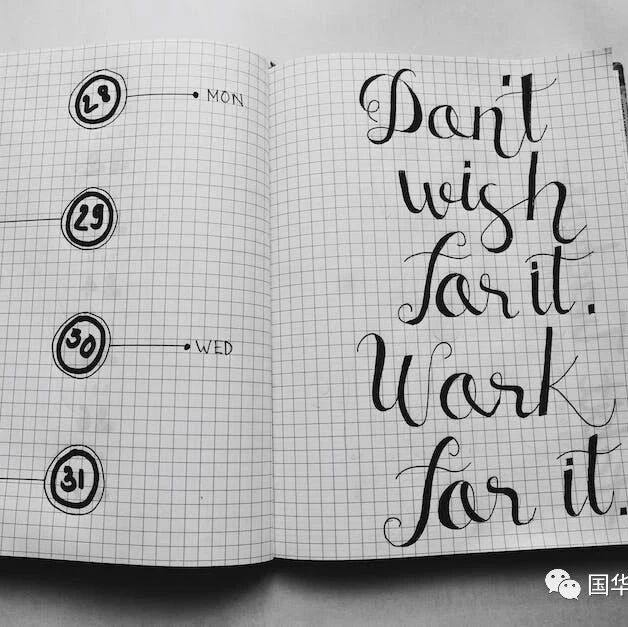 28 MON
29
30 WED
31
Don't
wish
for it.
Work
for it.
国华